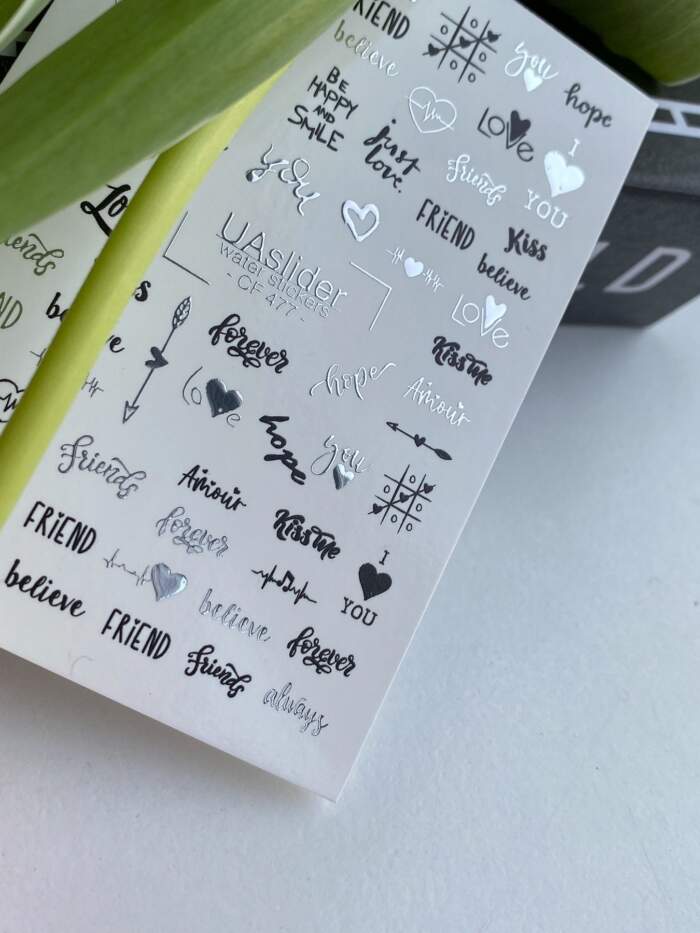 FRiEND
believe
you
hope
BE
HAPPY
AND
SMiLE
LOVE
I
YOU
just
love.
friends
you
FRIEND
Kiss
believe
UAslider
water stickers
- CF 477 -
LOVE
Kiss me
forever
hope
Amour
love
hope
you
friends
Amour
forever
Kiss me
I
YOU
FRiEND
believe
believe
FRiEND
friends
forever
always
friends